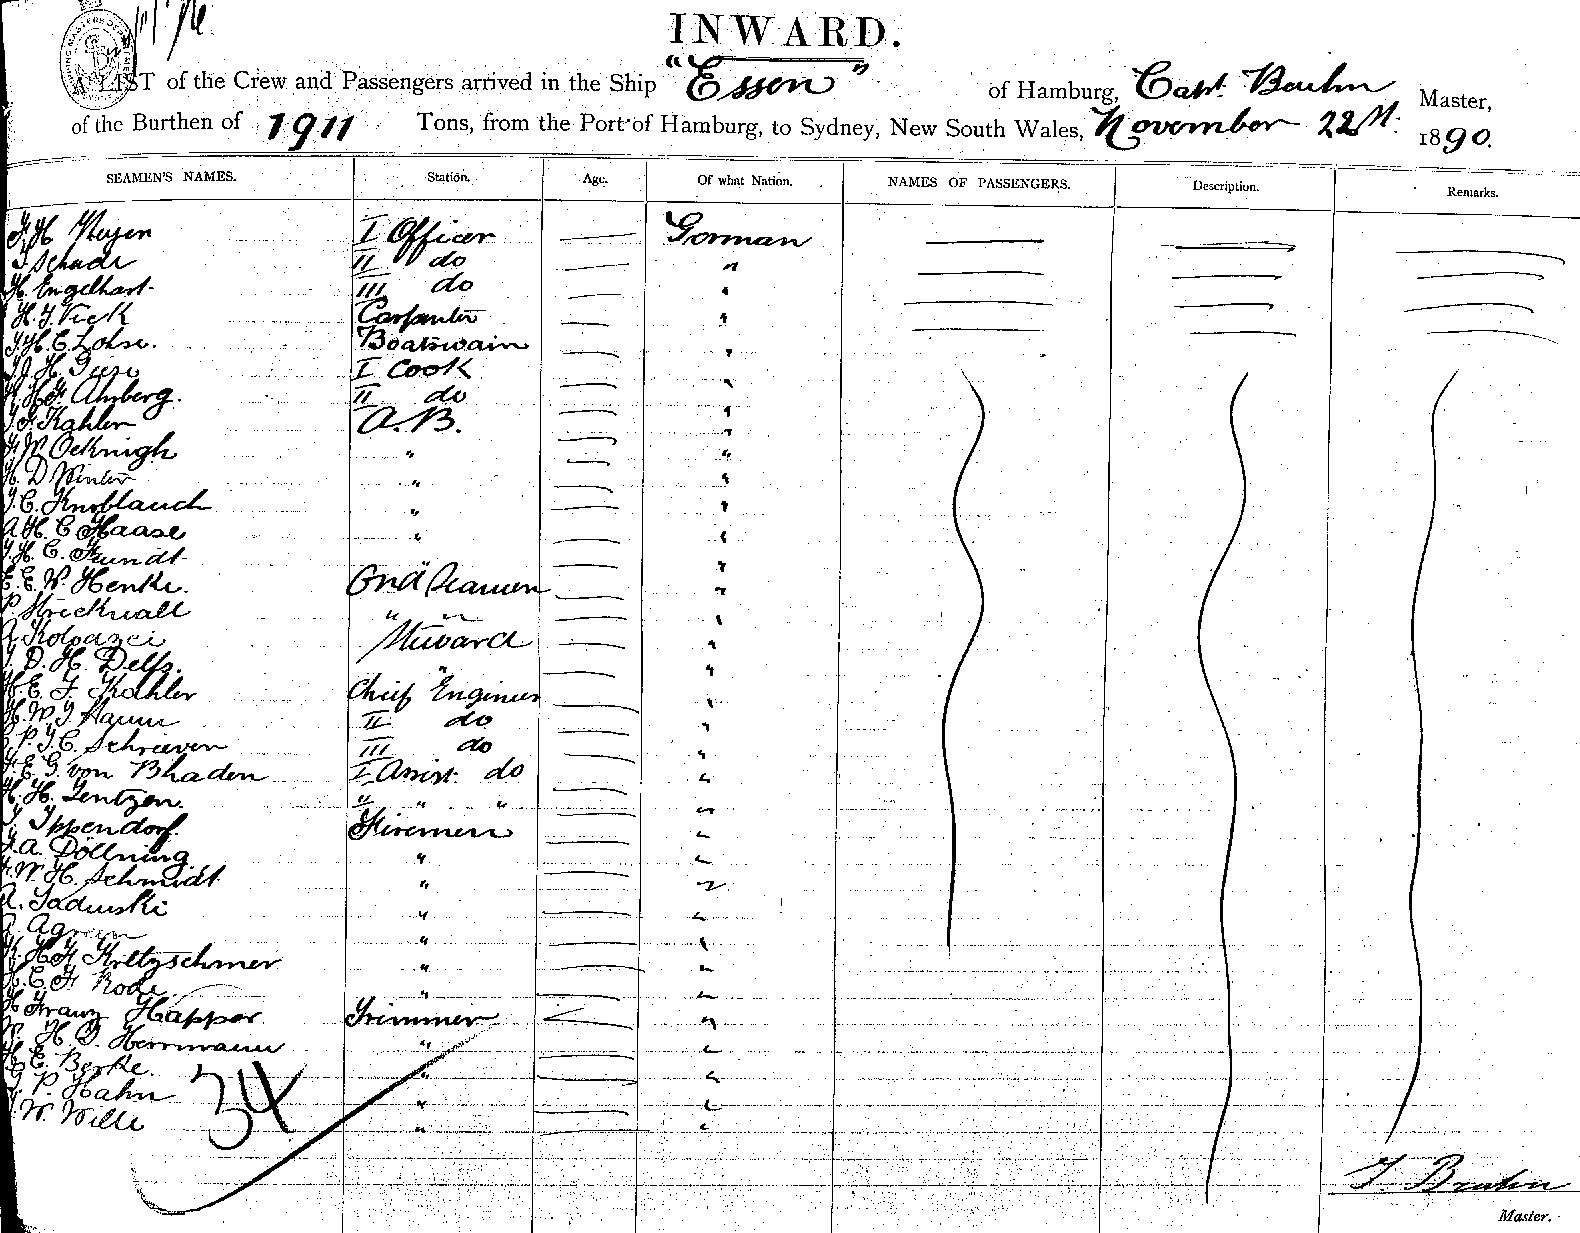 INWARD.
A LIST of the Crew and Passengers arrived in the Ship "Essen" of Hamburg, Capt. Bruhn Master,
of the Burthen of 1911 Tons, from the Port of Hamburg, to Sydney, New South Wales, November 22nd. 1890.
SEAMEN'S NAMES. Station. Age. Of what Nation. NAMES OF PASSENGERS. Description. Remarks.
F. H. Meyer I Officer German
Schade II do "
H. Engelhart III do "
H. J. Vick Carpenter "
J. H. C. Lohse. Boatswain "
I Cook "
H. H. F. Ahrberg. II do "
J. F. Kahler A.B. "
F. W. Oeknigk " "
H. D. Winter " "
J. C. Knoblauch " "
A. H. C. Haase " "
J. H. C. Fundt "
E. E. W. Henke. Ord Seamen "
P. Strickwall " " "
A. Kolodzei Steward "
J. D. H. Delfs. " "
H. E. F. Kahler Chief Engineer "
H. W. J. Hamm II do "
P. J. C. Schrieven III do "
F. E. G. von Bhaden I Assist. do "
H. H. Jentzen. " " " "
J. Ippendorf. Firemen "
F. A. Döllning " "
F. W. H. Schmidt " "
A. Sadowski " "
A. Agreen " "
K. H. F. Kretzschmer " "
H. C. F. Rode. " "
H Franz Happer Trimmer "
W. H. J. Herrmann " "
H. E. Berke. " "
J. P. Hahn " "
J. W. Wille " "
34
J. Bruhn
Master.